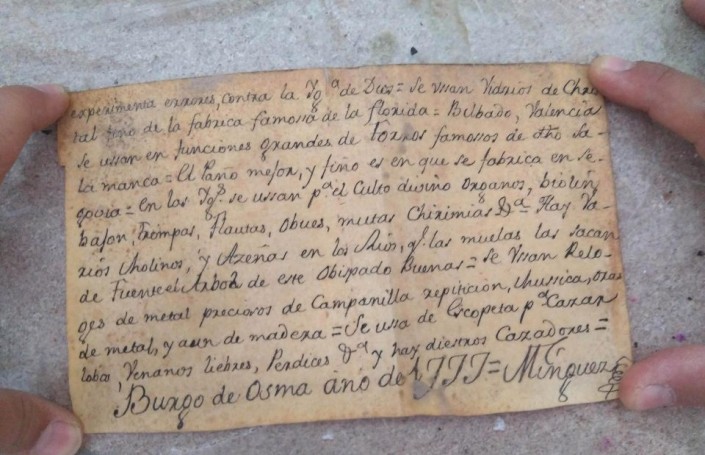 experimenta errores, contra la Yg.ª de Dios = Se vsan Vidrios de Chris
tal fino de la fabrica famossa de la florida = Bilbado, Valencia
Se ussan en funciones grandes de torros famossos de dho Sa-
lamanca = El Paño mejor, y fino es en que se fabrica en Se-
govia = en las Yg.s se ussan p.ª el Culto divino Organos, biolin,
bajon, trompas, flautas, obues, Chirimias &ª = Hay Va-
rios Molinos, y Azeñas en los Rios, q.e las muelas las sacan
de Fuentcel Arbol de este Obispado Buenas = Se Vsan Relo-
ges de metal preciosos de Campanilla repiticion, Mussica, otros
de metal, y aun de madera = Se ussa de Escopeta p.ª Cazar
lobos, Venaos liebres, Perdices &ª y hay diestros Cazadores =
Burgo de Osma año de 1777 = Minguez